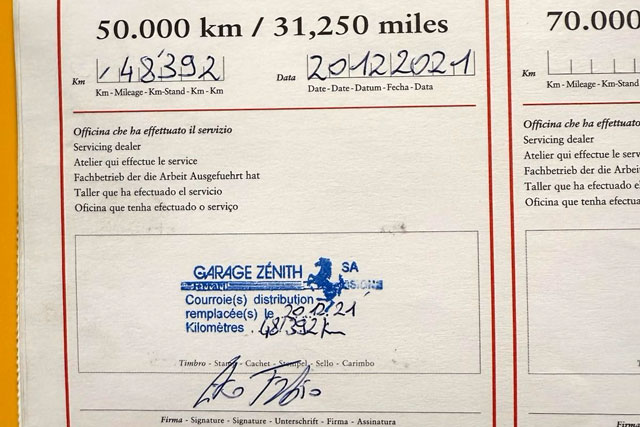 50.000 km / 31,250 miles
Km 48'392 Data 20122021
Km - Mileage - Km-Stand - Km - Km Date - Date - Datum - Fecha - Data
Officina che ha effettuato il servizio
Servicing dealer
Atelier qui effectue le service
Fachbetrieb der die Arbeit Ausgefuehrt hat
Taller que ha efectuado el servicio
Oficina que tenha efectuado o serviço
GARAGE ZÉNITH SA
Courroie(s) distribution
remplacée(s) le 20.12.21
Kilomètres 48'392 km
Timbro - Stamp - Cachet - Stempel - Sello - Carimbo
Firma - Signature - Signature - Unterschrift - Firma - Assinatura
70.000
Km
Km - Mileage - Km-
Officina che ha effettuato
Servicing dealer
Atelier qui effectue le serv
Fachbetrieb der die Arbeit
Taller que ha efectuado e
Oficina que tenha efectua
Firm